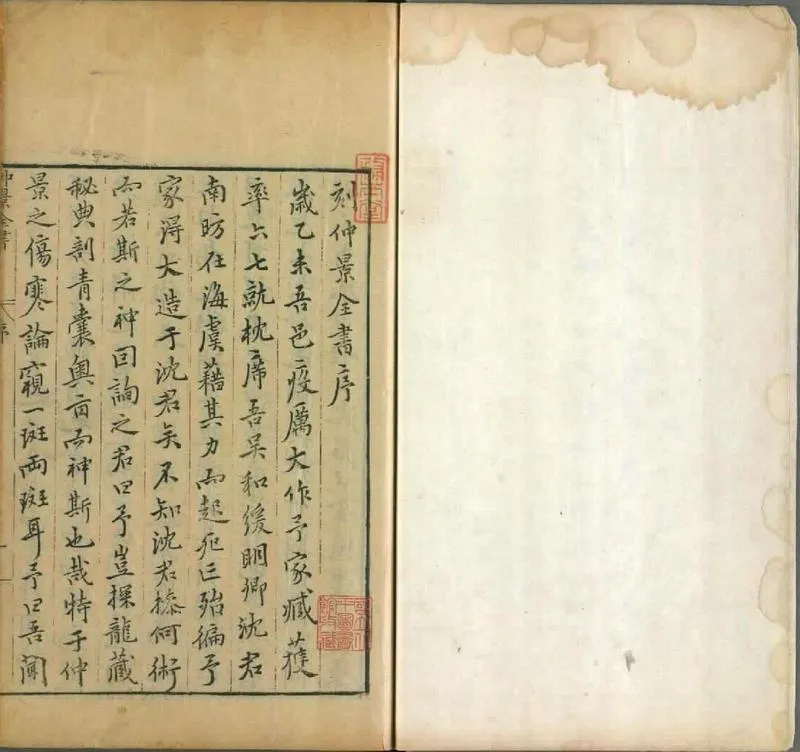 刻仲景全書序
歲乙未吾邑疫厲大作予家臧獲
率六七就枕席吾吴和緩明卿沈君
南昉在海虞藉其力而起死亡殆徧予
家得大造于沈君矣不知沈君操何術
而若斯之神因詢之君曰予豈探龍藏
秘典剖青囊奥旨而神斯也哉特于仲
景之傷寒論窺一斑兩斑耳予曰吾聞
仲景全書
序